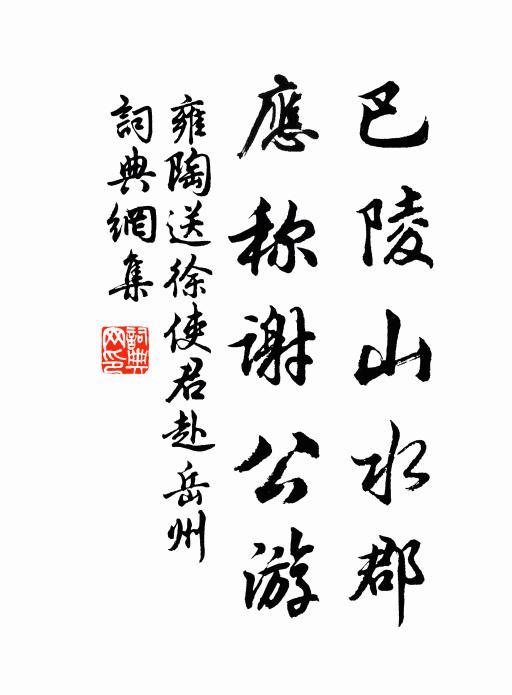 巴陵山水郡
應称謝公游
雍陶送徐使君赴岳州
詞典網集
詞典网印